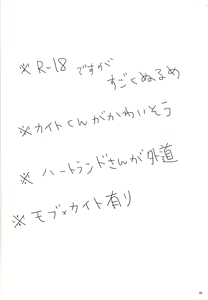 ※R-18ですが
すごくぬるめ
※カイトくんがかわいそう
※ハートランドさんが外道
※モブ×カイト有り